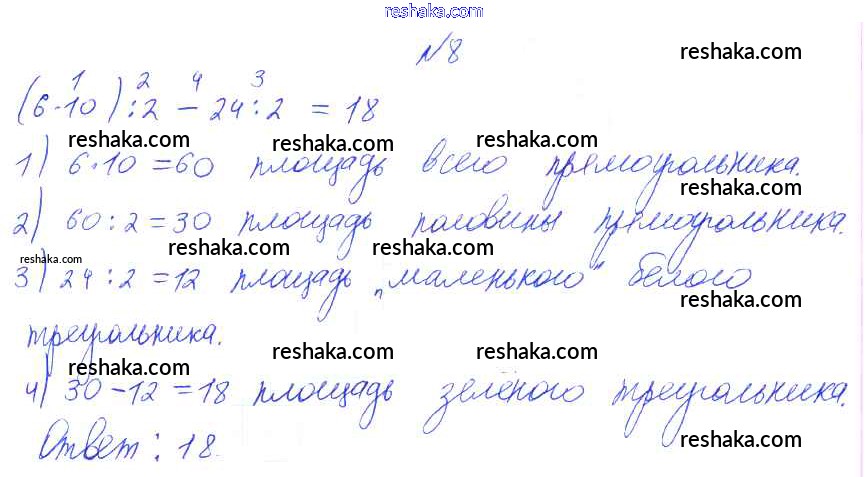 reshaka.com
№8
reshaka.com
1 2 4 3
(6·10):2 - 24:2 = 18
reshaka.com reshaka.com reshaka.com
1) 6·10=60 площадь всего прямоугольника.
reshaka.com
2) 60:2=30 площадь половины прямоугольника.
reshaka.com reshaka.com reshaka.com
3) 24:2=12 площадь „маленького" белого
reshaka.com
треугольника.
reshaka.com reshaka.com
4) 30-12=18 площадь зелёного треугольника.
reshaka.com
Ответ: 18.